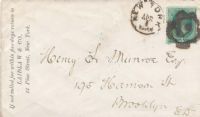 If not called for within five days return to
LAIDLAW & CO.,
11 Pine Street, New York.
NEW-YORK
Henry L. Munroe Esq
195 Harrison St
Brooklyn